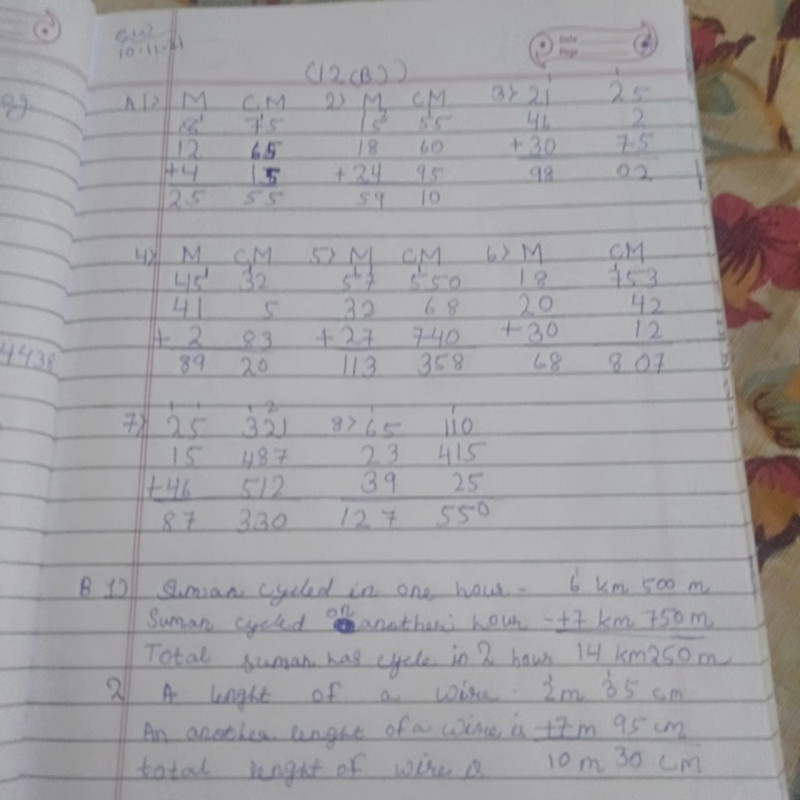 C.W
10.11.21
Date
Page
(12(B))
A 1) M CM 2) M CM 3) 21 25
8 75 15 55 46 2
12 65 18 60 +30 75
+4 15 +24 95 98 02
25 55 59 10
4) M CM 5) M CM 6) M CM
45 32 57 550 18 753
41 5 32 68 20 42
+ 2 83 +27 740 +30 12
89 20 113 358 68 807
7) 25 321 8) 65 110
15 487 23 415
+46 512 39 25
87 330 127 550
B 1) Suman cycled in one hour - 6 km 500 m
Suman cycled on another hour - +7 km 750 m
Total suman has cycle in 2 hour 14 km 250 m
2 A lenght of a wire - 2m 35 cm
An another lenght of a wire is +7 m 95 cm
total lenght of wire is 10 m 30 cm